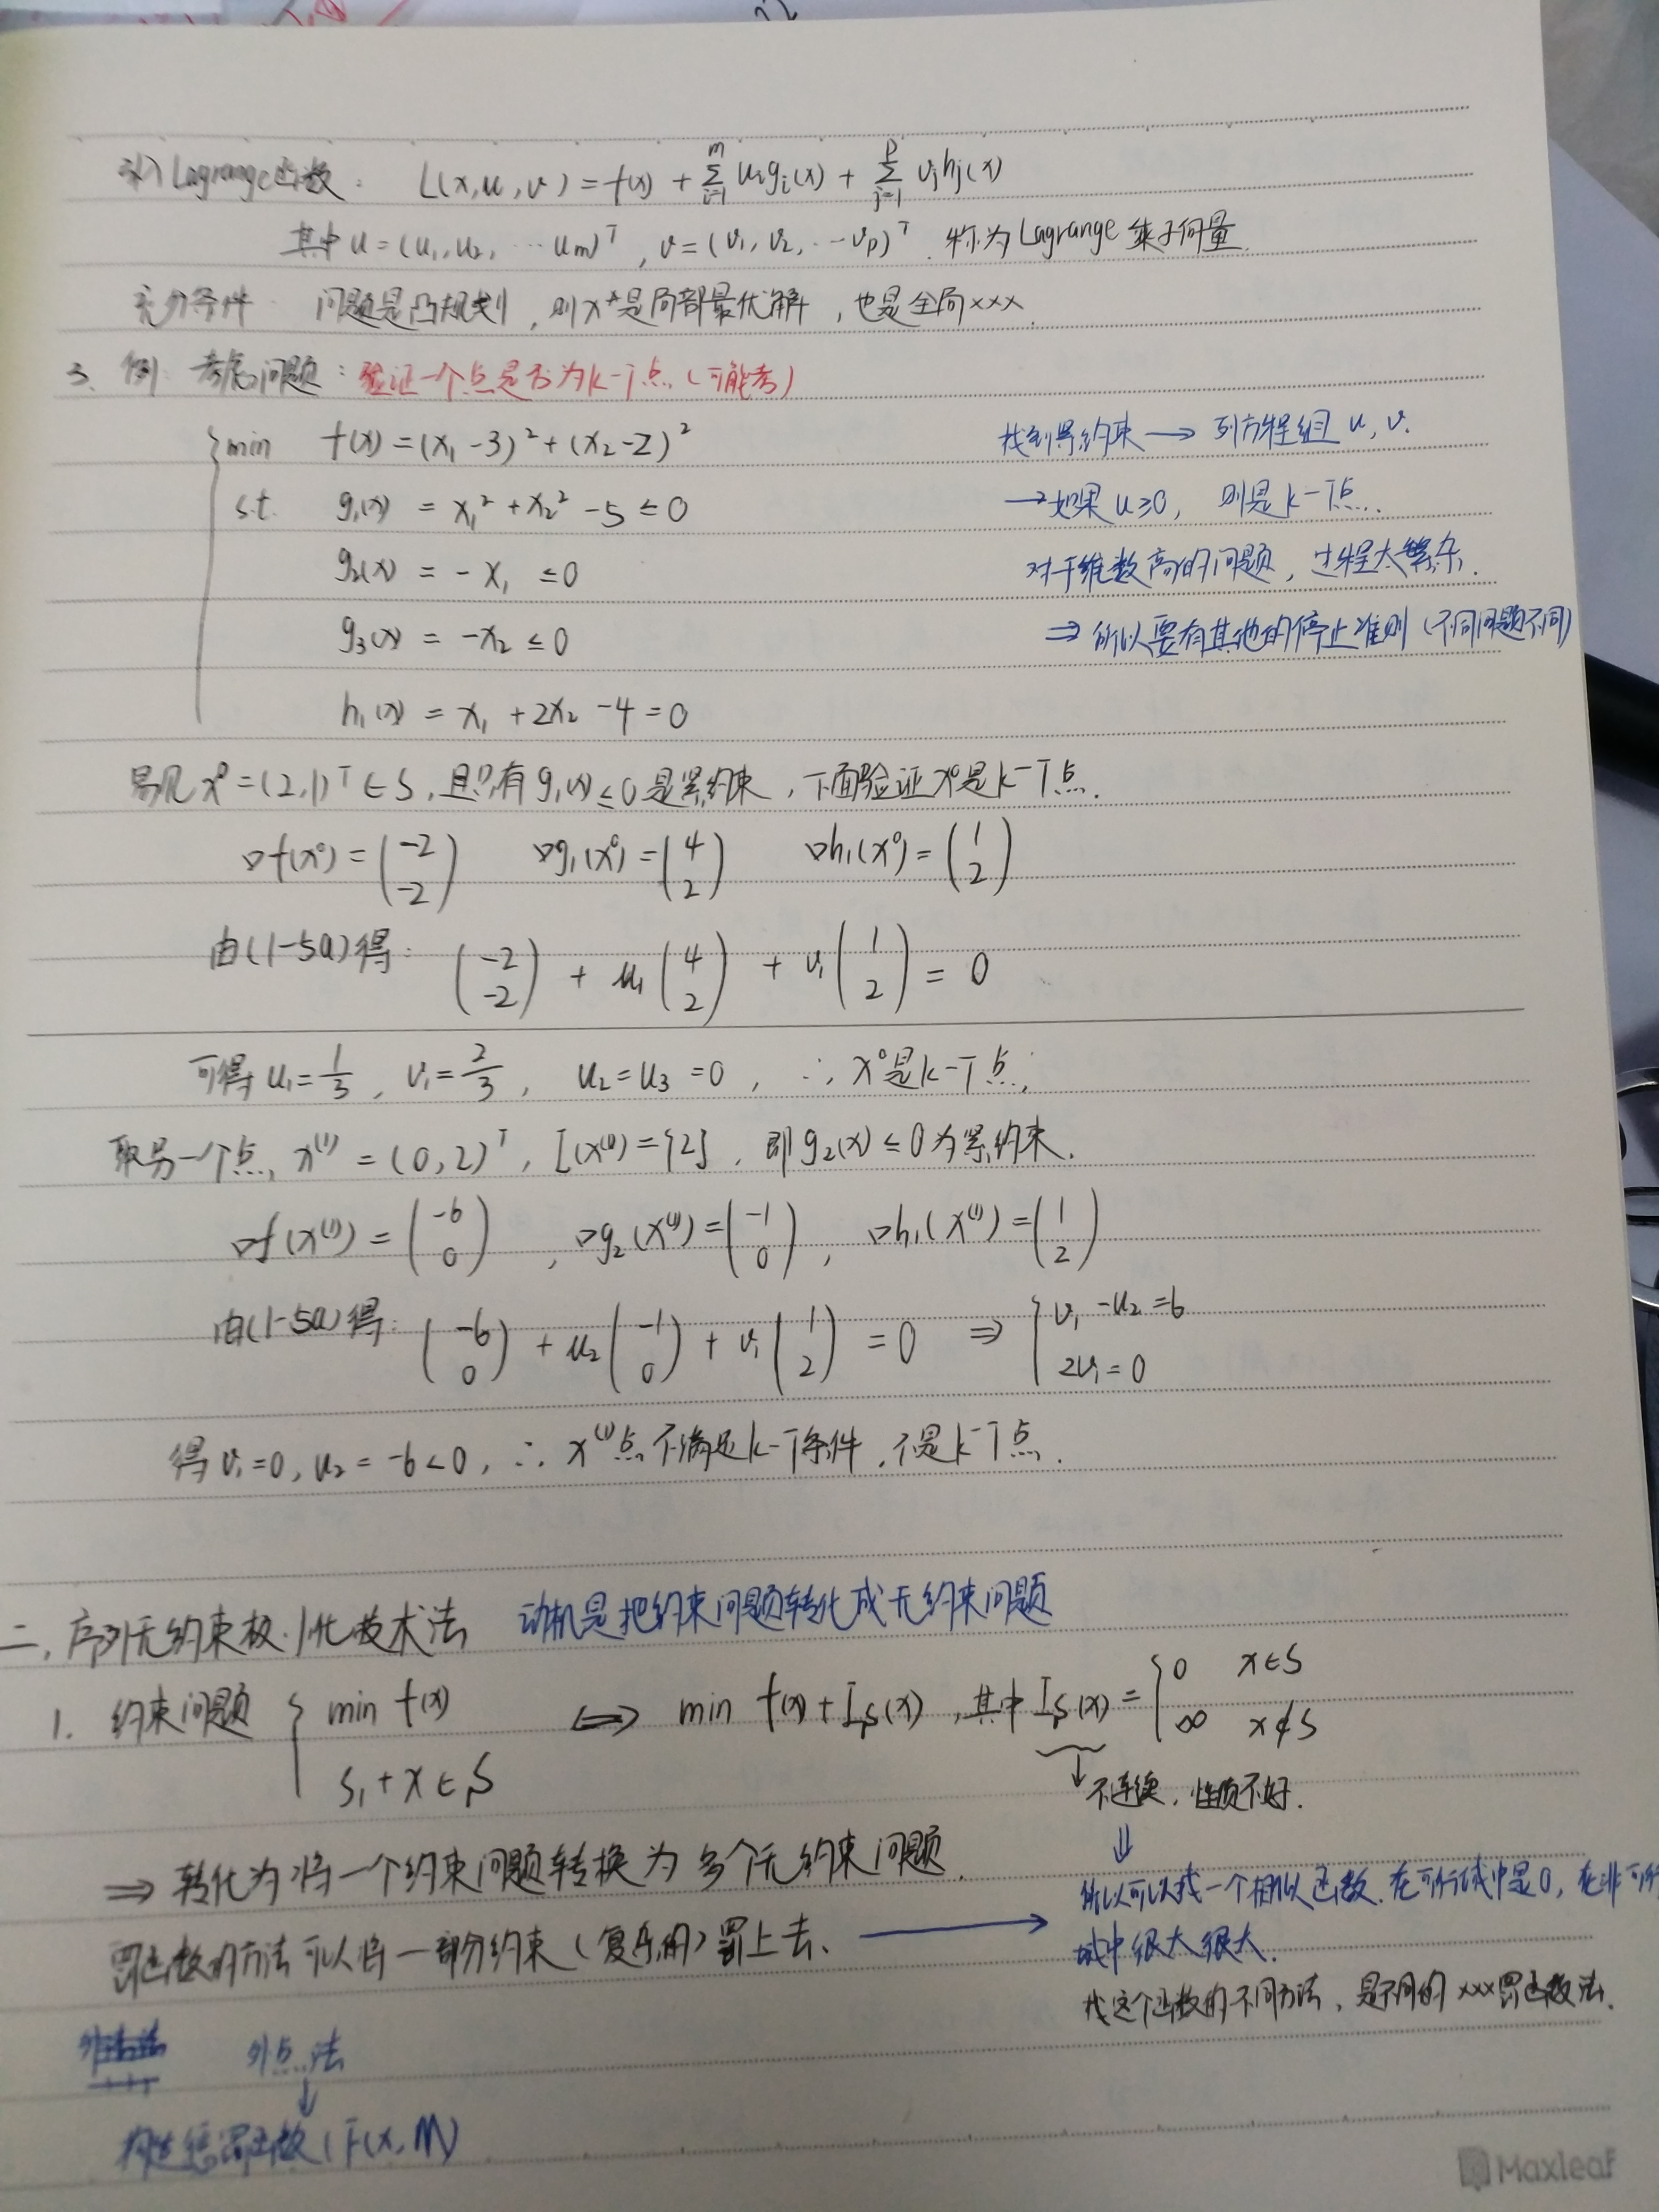 引入Lagrange函数: L(x,u,v) = f(x) + ∑_{i=1}^{m} u_i g_i(x) + ∑_{j=1}^{p} v_j h_j(x)
其中 u = (u₁, u₂, … u_m)ᵀ, v = (v₁, v₂, … v_p)ᵀ. 称为Lagrange乘子向量.
充分条件 问题是凸规划, 则x*是局部最优解, 也是全局×××.
3. 例: 考虑问题: 验证一个点是否为K-T点 (可能考)
min f(x) = (x₁-3)² + (x₂-2)²
s.t. g₁(x) = x₁² + x₂² - 5 ≤ 0
g₂(x) = -x₁ ≤ 0
g₃(x) = -x₂ ≤ 0
h₁(x) = x₁ + 2x₂ - 4 = 0
找到紧约束 → 列方程组 u, v.
→ 如果 u ≥ 0, 则是K-T点.
对于维数高的问题, 过程太繁杂.
⇒ 所以要有其他的停止准则 (不同问题不同)
易见 x⁰ = (2,1)ᵀ ∈ S, 且只有 g₁(x) ≤ 0 是紧约束, 下面验证x⁰是K-T点.
▽f(x⁰) = (-2 -2) ▽g₁(x⁰) = (4 2) ▽h₁(x⁰) = (1 2)
由(1-5a)得: (-2 -2) + u₁ (4 2) + v₁ (1 2) = 0
可得 u₁ = 1/3, v₁ = 2/3, u₂ = u₃ = 0, ∴ x⁰是K-T点.
取另一个点, x⁽¹⁾ = (0,2)ᵀ, I(x⁽¹⁾) = {2}, 即 g₂(x) ≤ 0 为紧约束.
▽f(x⁽¹⁾) = (-6 0), ▽g₂(x⁽¹⁾) = (-1 0), ▽h₁(x⁽¹⁾) = (1 2)
由(1-5a)得: (-6 0) + u₂ (-1 0) + v₁ (1 2) = 0 ⇒ { v₁ - u₂ = 6
2v₁ = 0
得 v₁ = 0, u₂ = -6 < 0, ∴ x⁽¹⁾点不满足K-T条件, 不是K-T点.
二, 序列无约束极小化技术法 动机是把约束问题转化成无约束问题
1. 约束问题 { min f(x) ⟺ min f(x) + I_S(x), 其中 I_S(x) = { 0 x∈S
∞ x∉S
s,t x ∈ S
↓ 不连续, 性质不好.
⇓
⇒ 转化为将一个约束问题转换为多个无约束问题.
罚函数的方法可以将一部分约束(复杂的)罚上去. →
所以可以找一个相似函数. 在可行域中是0, 在非可行
域中很大很大.
找这个函数的不同方法, 是不同的×××罚函数法.
外点法
↓
构造 罚函数 (F(x,M)
Maxleaf